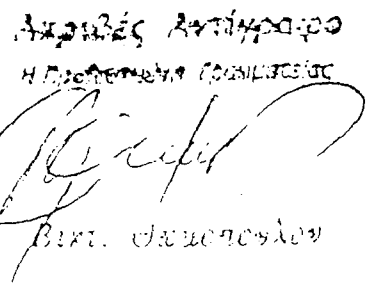 Ακριβές Αντίγραφο
Η Προϊσταμένη Γραμματείας
Βικτ.